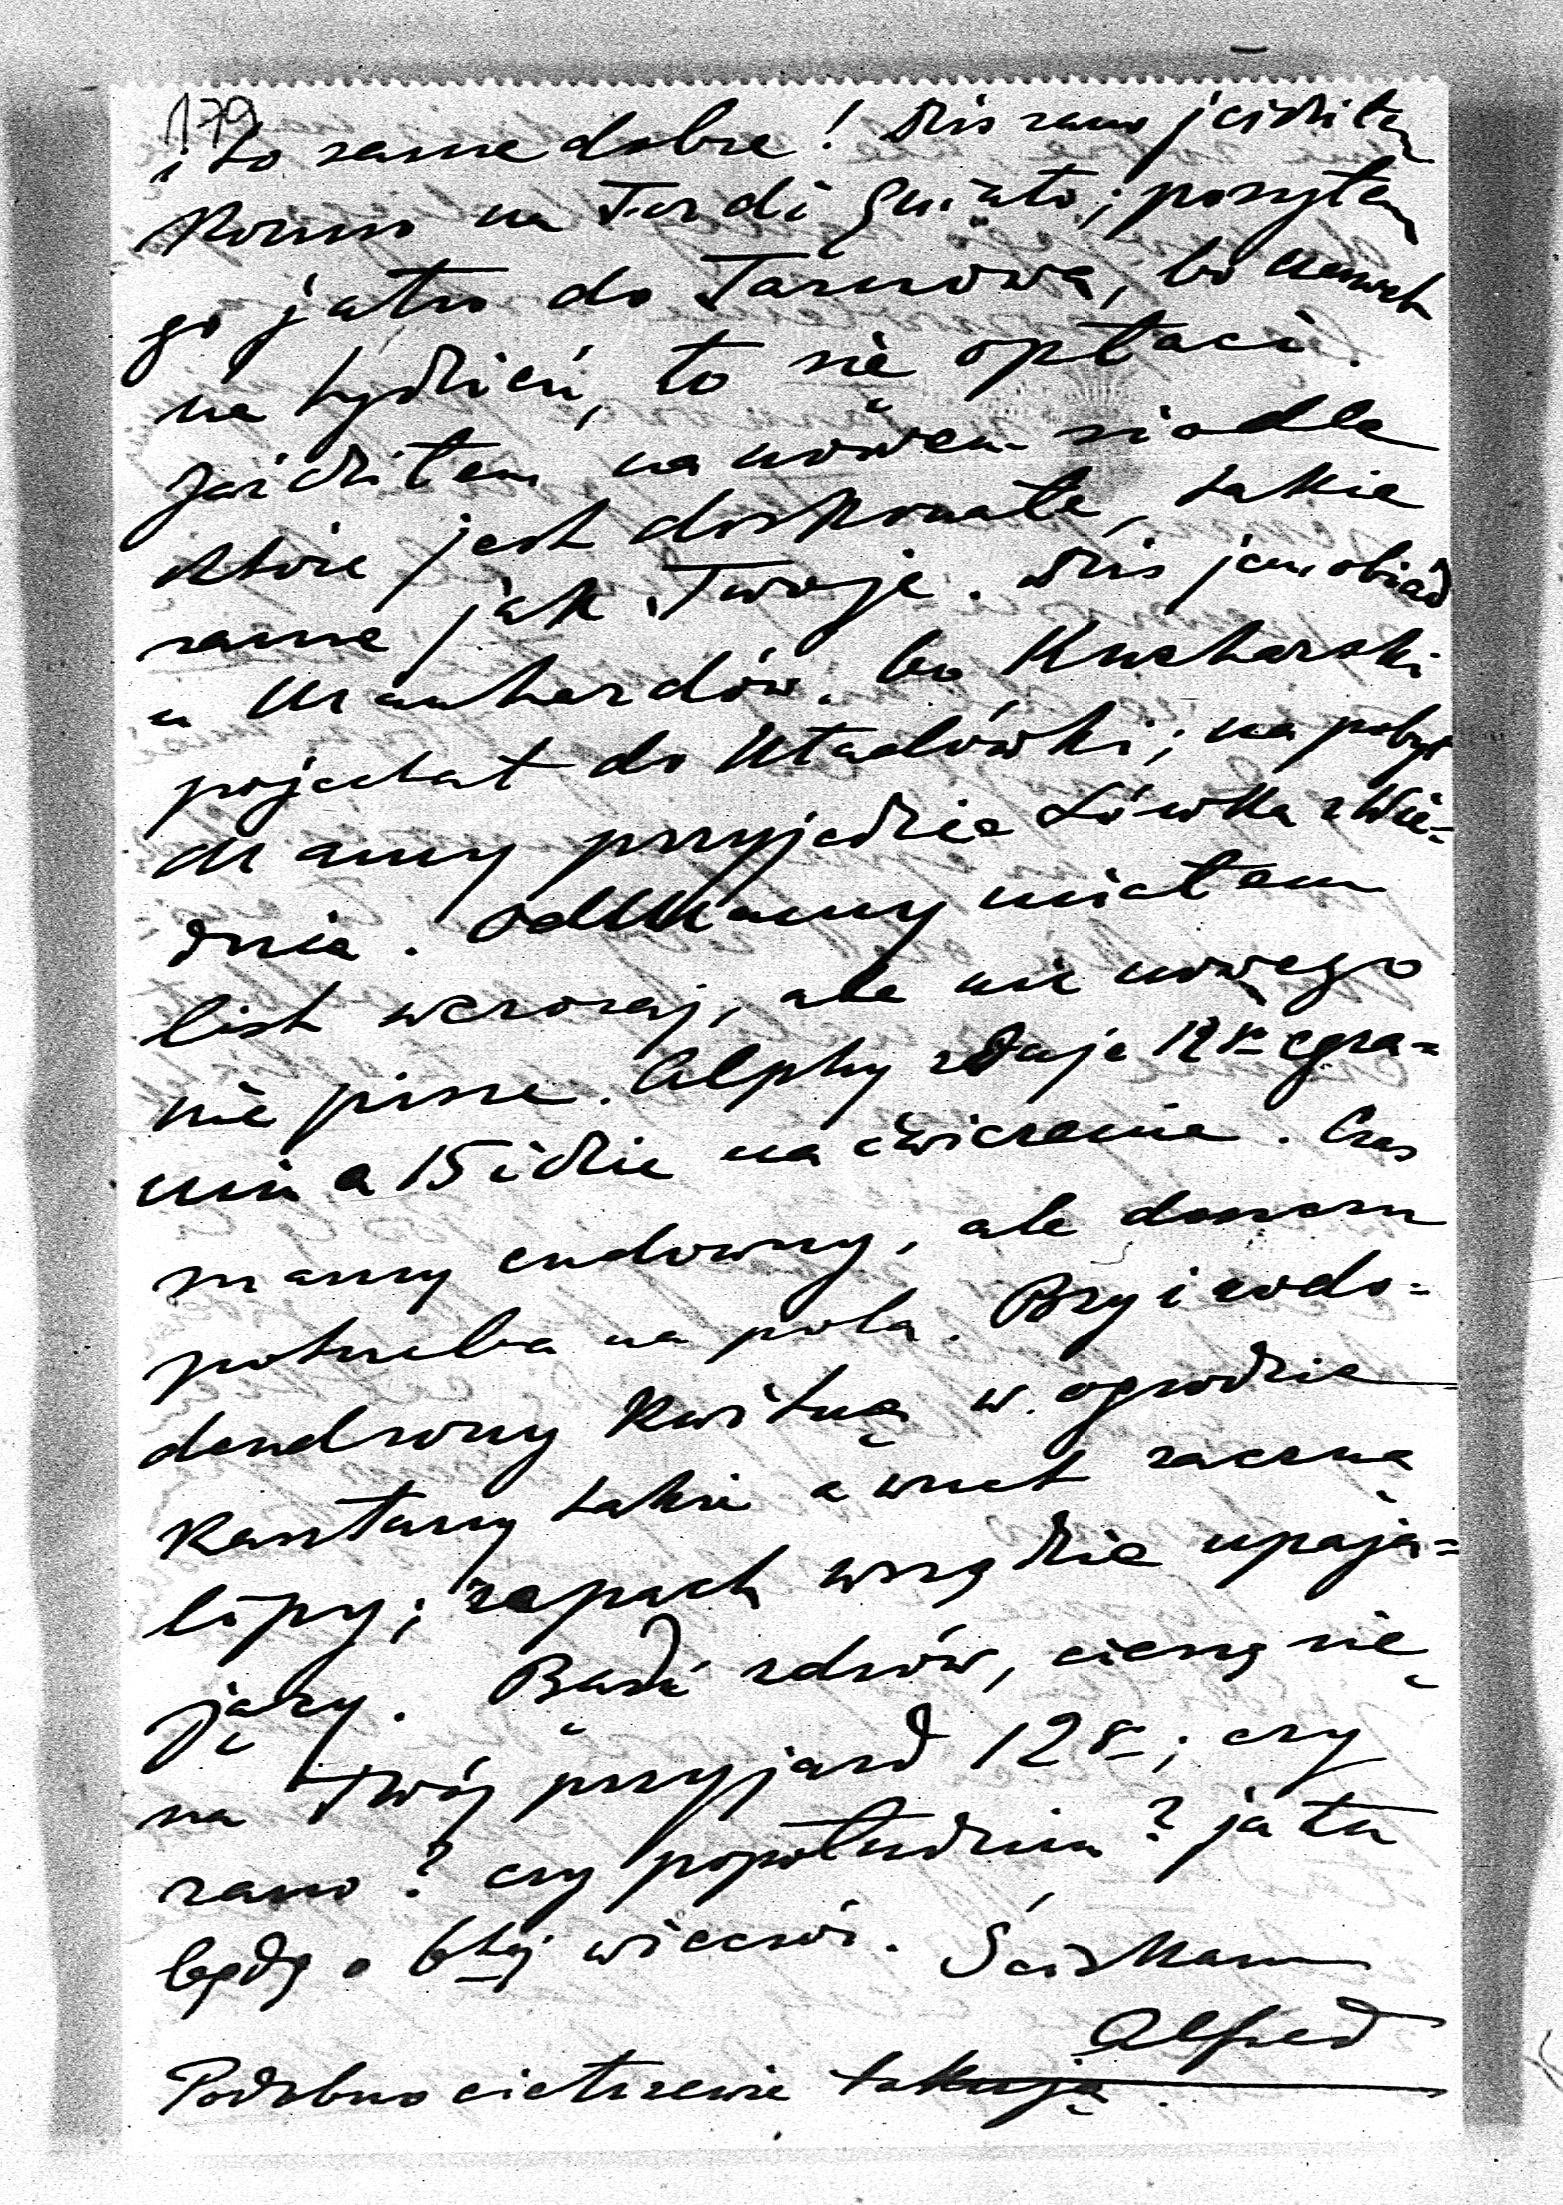 179
i to same dobre! Dziś rano jeździłem
konno na Ferdi Gniato; posyłam
go jutro do Tarnowa, bo
na tydzień, to się opłaci.
Jeździłem na nowem siodle
które jest doskonałe, takie
same jak Twoje. Dziś jem obiad
u Manhardów, bo Kucharski
pojechał do Władówki; na pobyt
Mamy przyjedzie Lówka z Wie=
dnia. Od Mamy miałem
list wczoraj, ale nic nowego
nie pisze. Alphy zdaje 12go egza=
min a 15 idzie na ćwiczenia. Czas
mamy cudowny, ale deszczu
potrzeba na pola. Bzy i rodo=
dendrony kwitną w ogrodzie
kasztany także a wnet zaczną
lipy; zapach wszędzie upaja=
jący. Bądź zdrów, cieszę się
na Twój przyjazd 12go; czy
rano? czy popołudniu? ja tu
będę o 6tej wieczór. Ściskam
Alfred
Podobno cietrzewie tokują.